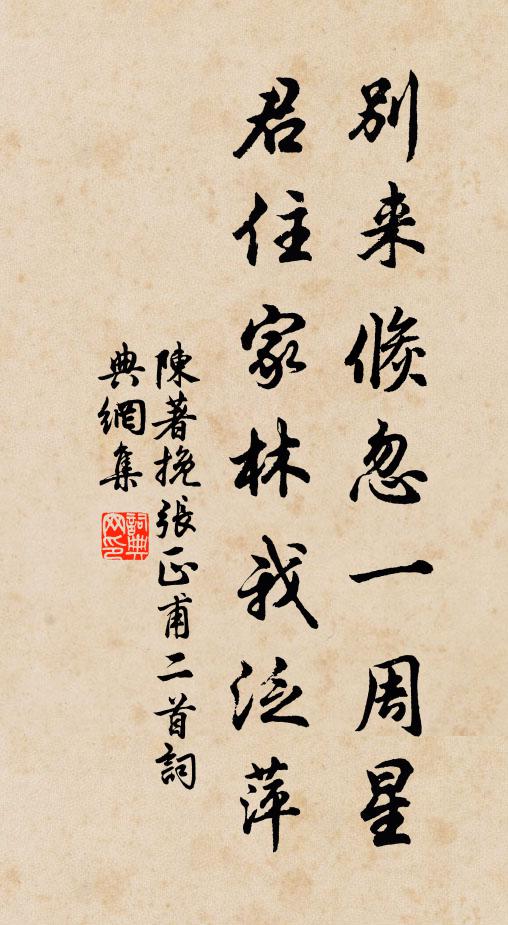 別来倐忽一周星
君住家林我泛萍
陳著挽張正甫二首詞
典網集
詞典
网印